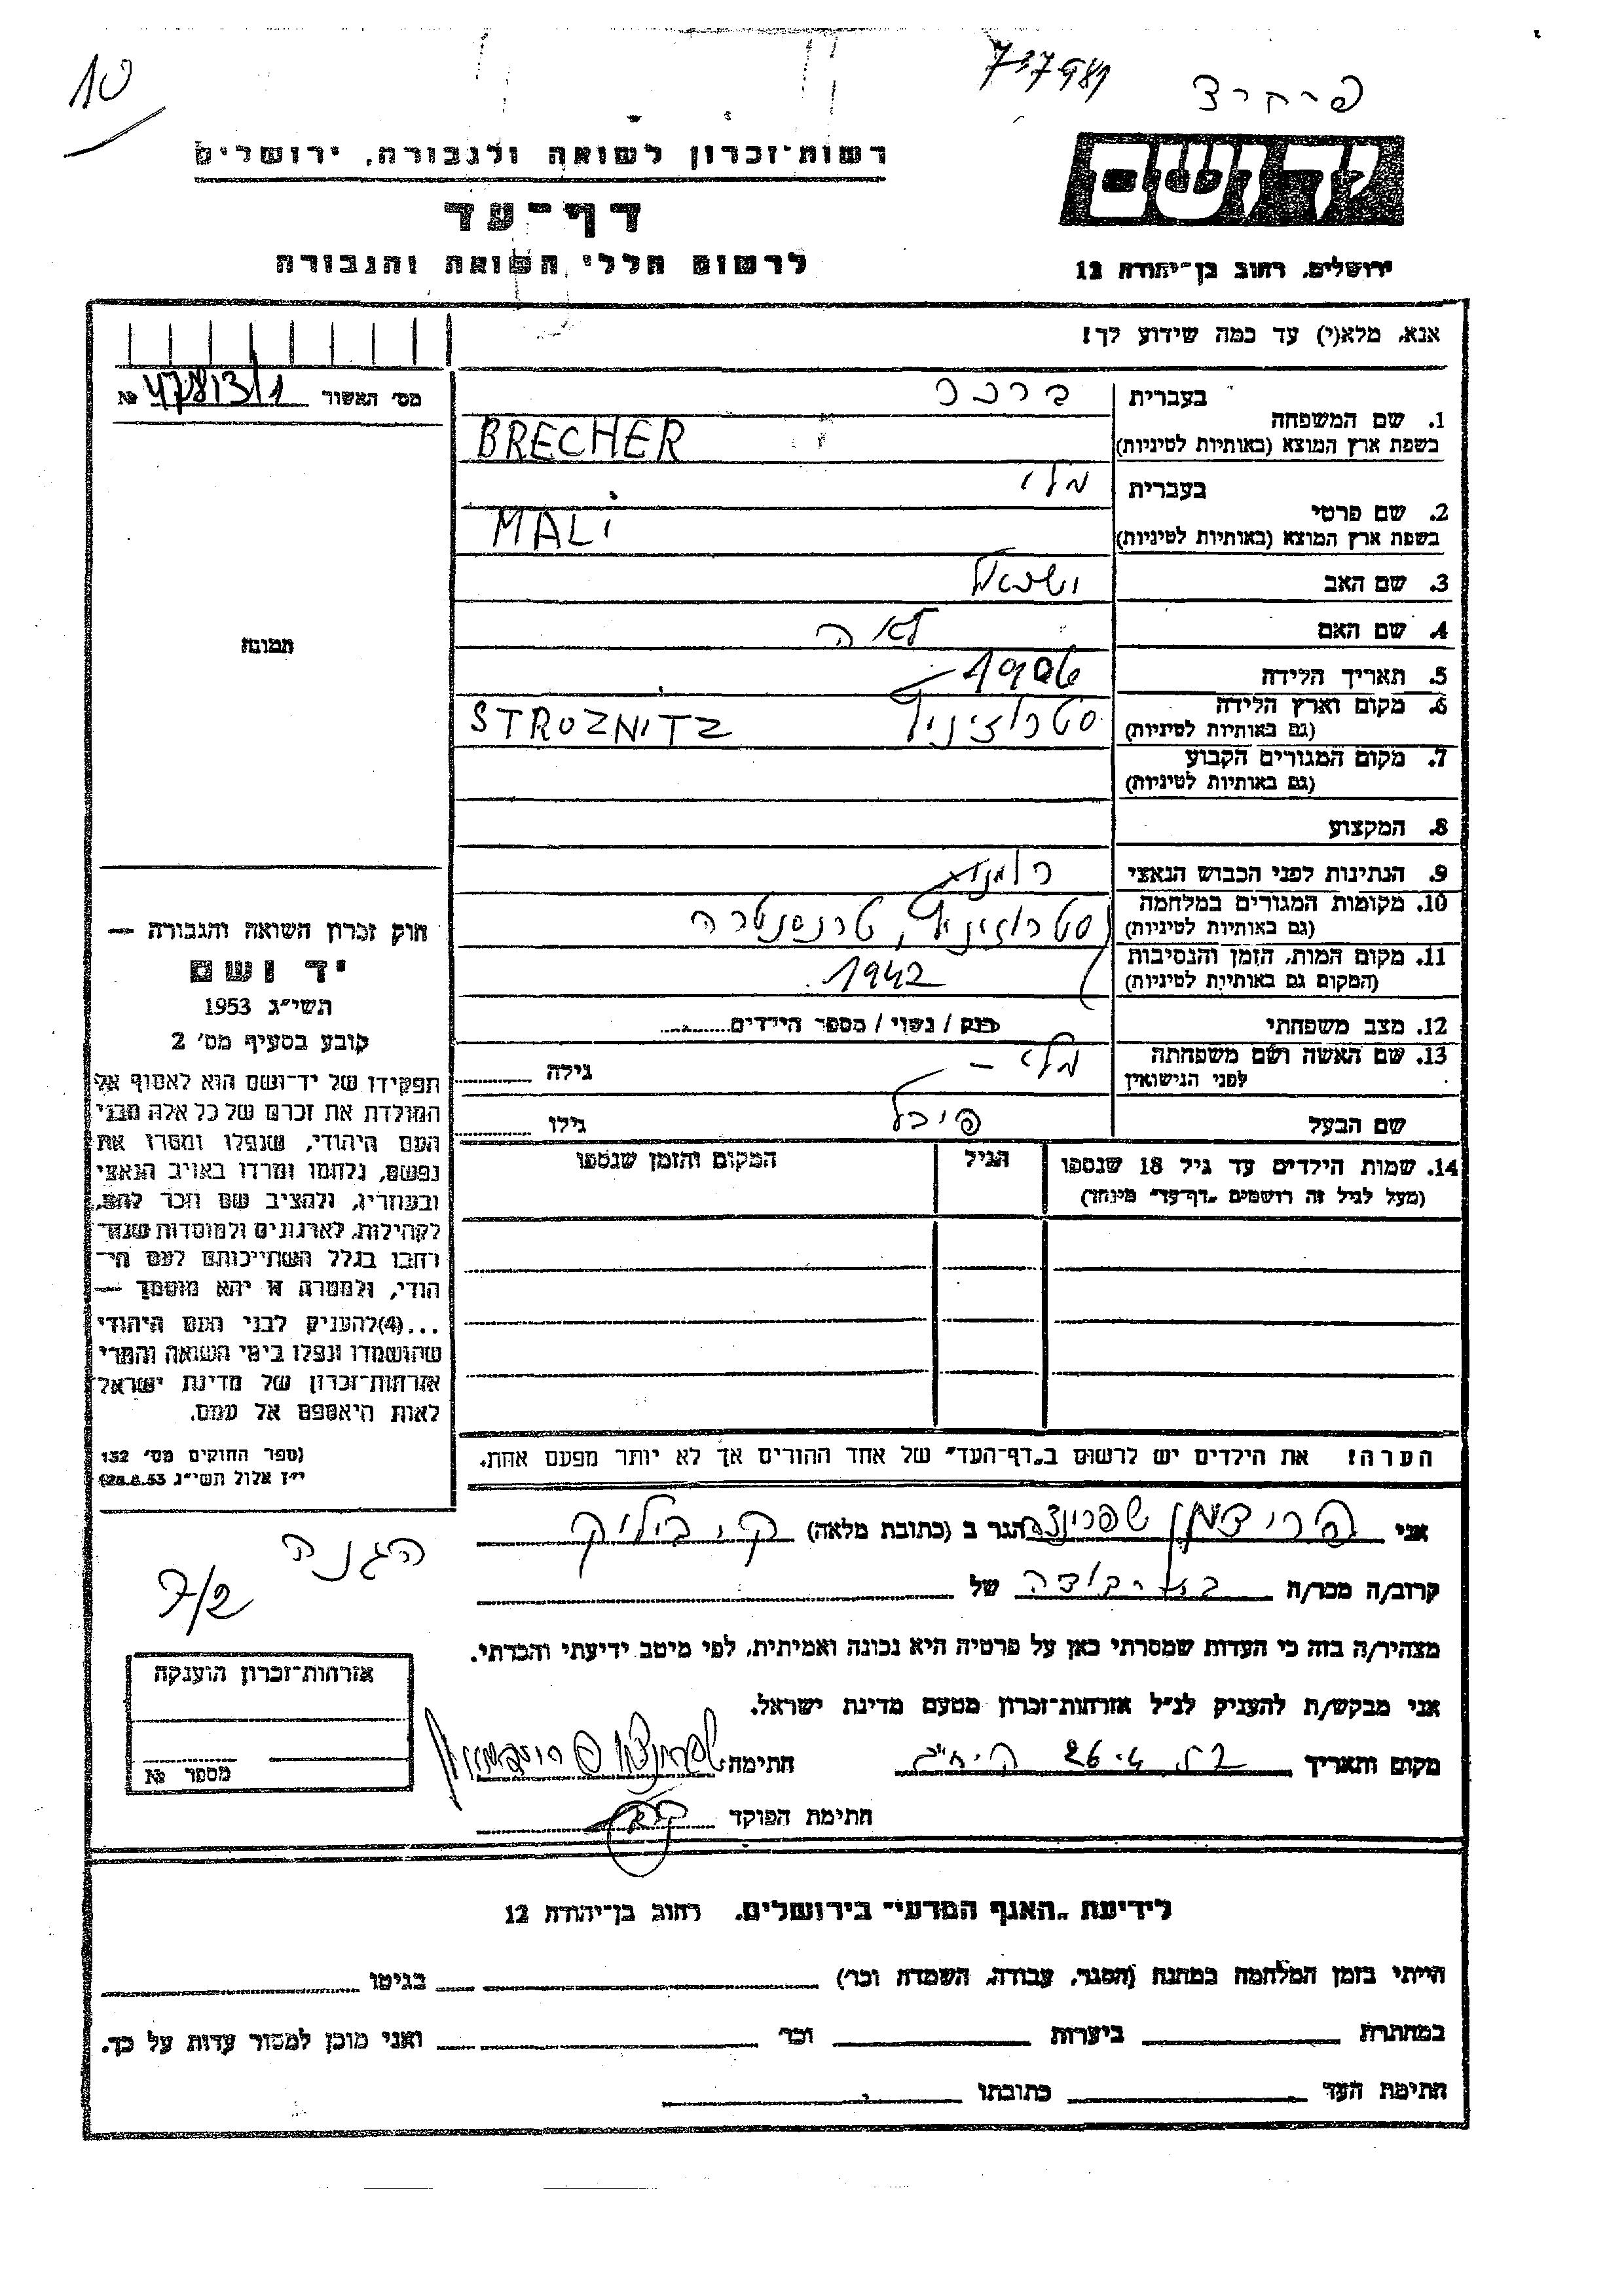 10
737981
פרחרצ
רשות־זכרון לשואה ולגבורה, ירושלים
יד ושם
דף־עד
לרשום חללי השואה והגבורה
ירושלים, רחוב בן־יהודה 12
אנא, מלא(י) עד כמה שידוע לך!
מס׳ האשור № 47813/1
תמונה
בעברית ברכר
1. שם המשפחה
בשפת ארץ המוצא (באותיות לטיניות) BRECHER
בעברית מלי
2. שם פרטי
בשפת ארץ המוצא (באותיות לטיניות) MALI
3. שם האב ישראל
4. שם האם לאה
5. תאריך הלידה
6. מקום וארץ הלידה
(גם באותיות לטיניות) סטרוזיניץ STROZNITZ
7. מקום המגורים הקבוע
(גם באותיות לטיניות)
8. המקצוע
9. הנתינות לפני הכבוש הנאצי
10. מקומות המגורים במלחמה
(גם באותיות לטיניות) סטרוזיניץ,
11. מקום המות, הזמן והנסיבות
(המקום גם באותיות לטיניות) 1942
12. מצב משפחתי רוק / נשוי / מספר הילדים
13. שם האשה ושם משפחתה
לפני הנישואין מלי – גילה
שם הבעל פיבל גילו
14. שמות הילדים עד גיל 18 שנספו
(מעל לגיל זה רושמים „דף־עד״ מיוחד)
הגיל
המקום והזמן שנספו
הערה! את הילדים יש לרשום ב„דף־העד״ של אחד ההורים אך לא יותר מפעם אחת.
חוק זכרון השואה והגבורה —
יד ושם
תשי״ג 1953
קובע בסעיף מס׳ 2
תפקידו של יד־ושם הוא לאסוף אל
המולדת את זכרם של כל אלה מבני
העם היהודי, שנפלו ומסרו את
נפשם, נלחמו ומרדו באויב הנאצי
ובעוזריו, ולהציב שם וזכר להם,
לקהילות, לארגונים ולמוסדות שנח־
רחבו בגלל השתייכותם לעם הי־
הודי, ולמטרה זו יהא מוסמך —
...(4)להעניק לבני העם היהודי
שהושמדו ונפלו בימי השואה והמרי
אזרחות־זכרון של מדינת ישראל
לאות היאספם אל עמם.
(ספר החוקים מס׳ 132
י״ז אלול תשי״ג 28.8.53)
אני פרידמן שפרינצה הגר ב (כתובת מלאה) ק. ביליק
קרוב/ה מכר/ה של
מצהיר/ה בזה כי העדות שמסרתי כאן על פרטיה היא נכונה ואמיתית, לפי מיטב ידיעתי והכרתי.
אני מבקש/ת להעניק לנ״ל אזרחות־זכרון מטעם מדינת ישראל.
מקום ותאריך חתימה
חתימת הפוקד
הגנה
7/2
אזרחות־זכרון הוענקה
מספר №
לידיעת „האגף המדעי״ בירושלים. רחוב בן־יהודה 12
הייתי בזמן המלחמה במחנה (הסגר, עבודה, השמדה וכו׳) בגיטו
במחתרת ביערות וכו׳ ואני מוכן למסור עדות על כך.
חתימת העד כתובתו